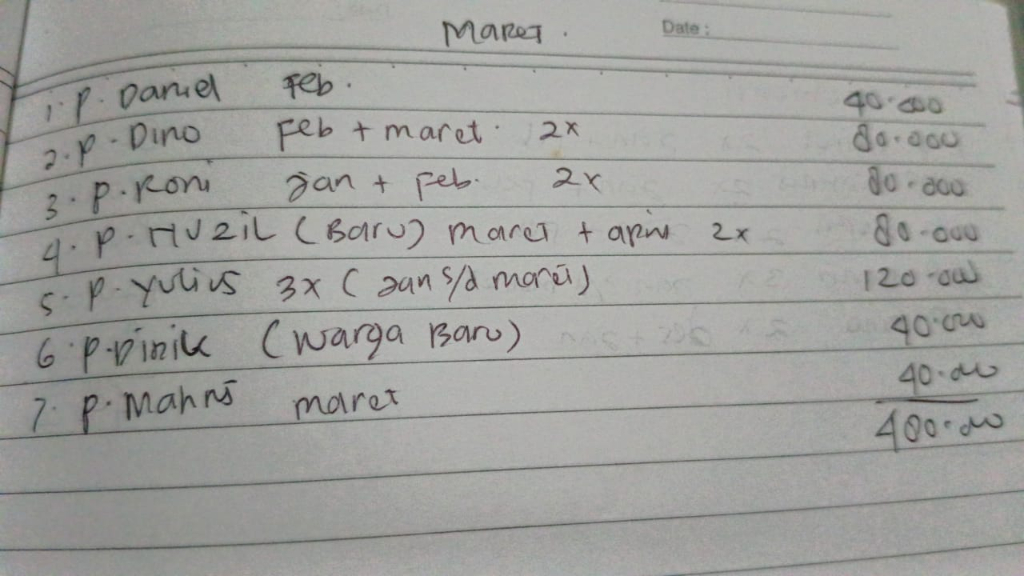 Maret.
Date:
1. P. Daniel Feb. 40.000
2. P. Dino Feb + maret. 2x 80.000
3. P. Roni Jan + Feb. 2x 80.000
4. P. HUZIL (Baru) maret + april 2x 80.000
5. P. Yulius 3x (Jan s/d maret) 120.000
6. P. Dinik (Warga Baru) 40.000
7. P. maret 40.000
400.000